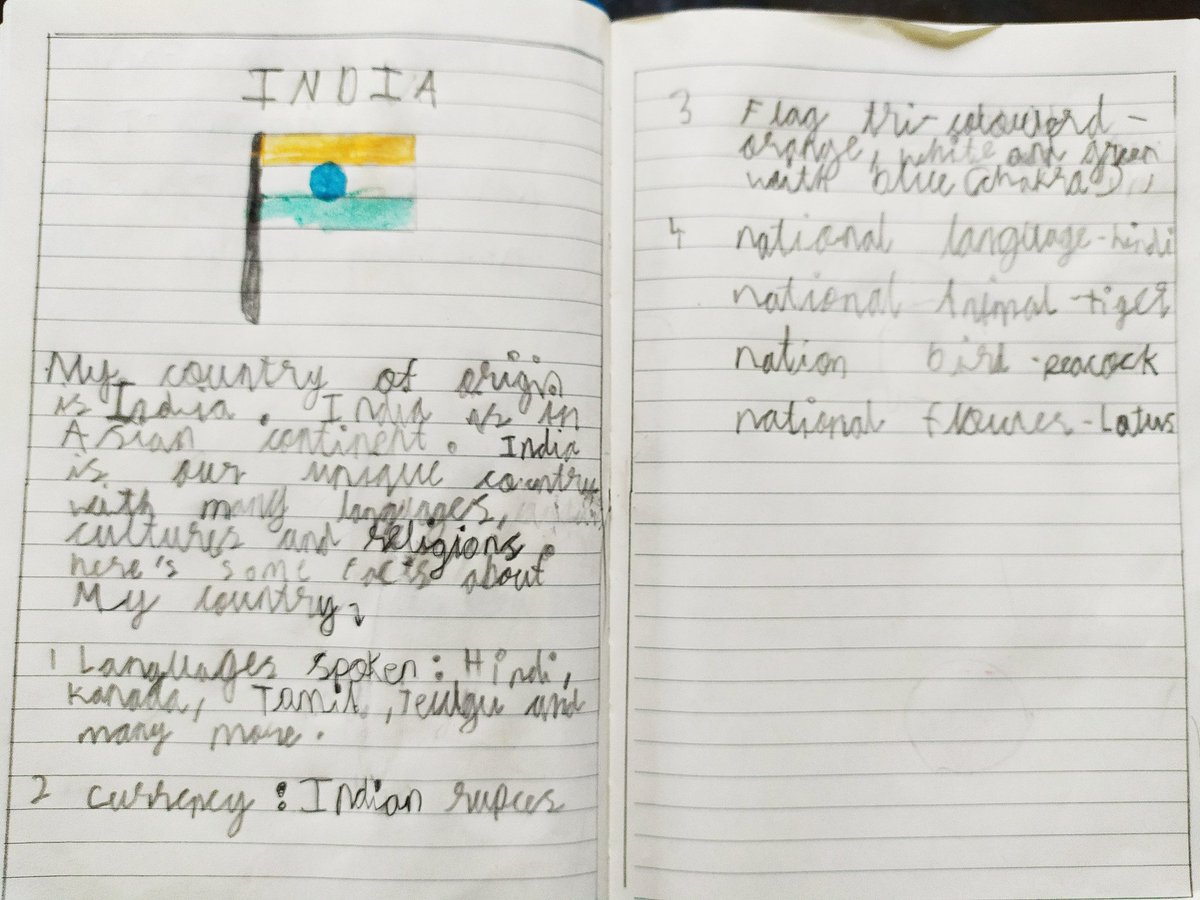 INDIA
My country of origin
is India. India is in
Asian continent. India
is our unique country
with many languages,
cultures and religions.
here's some facts about
My country
1 Languages spoken: Hindi,
Kanada, Tamil, Teulgu and
many more.
2 currency: Indian rupees
3 Flag tri-colouerd -
orange, white and green
with blue (chakra)
4 national language - hindi
national Animal - tiger
nation bird - peacock
national floures - Lotus